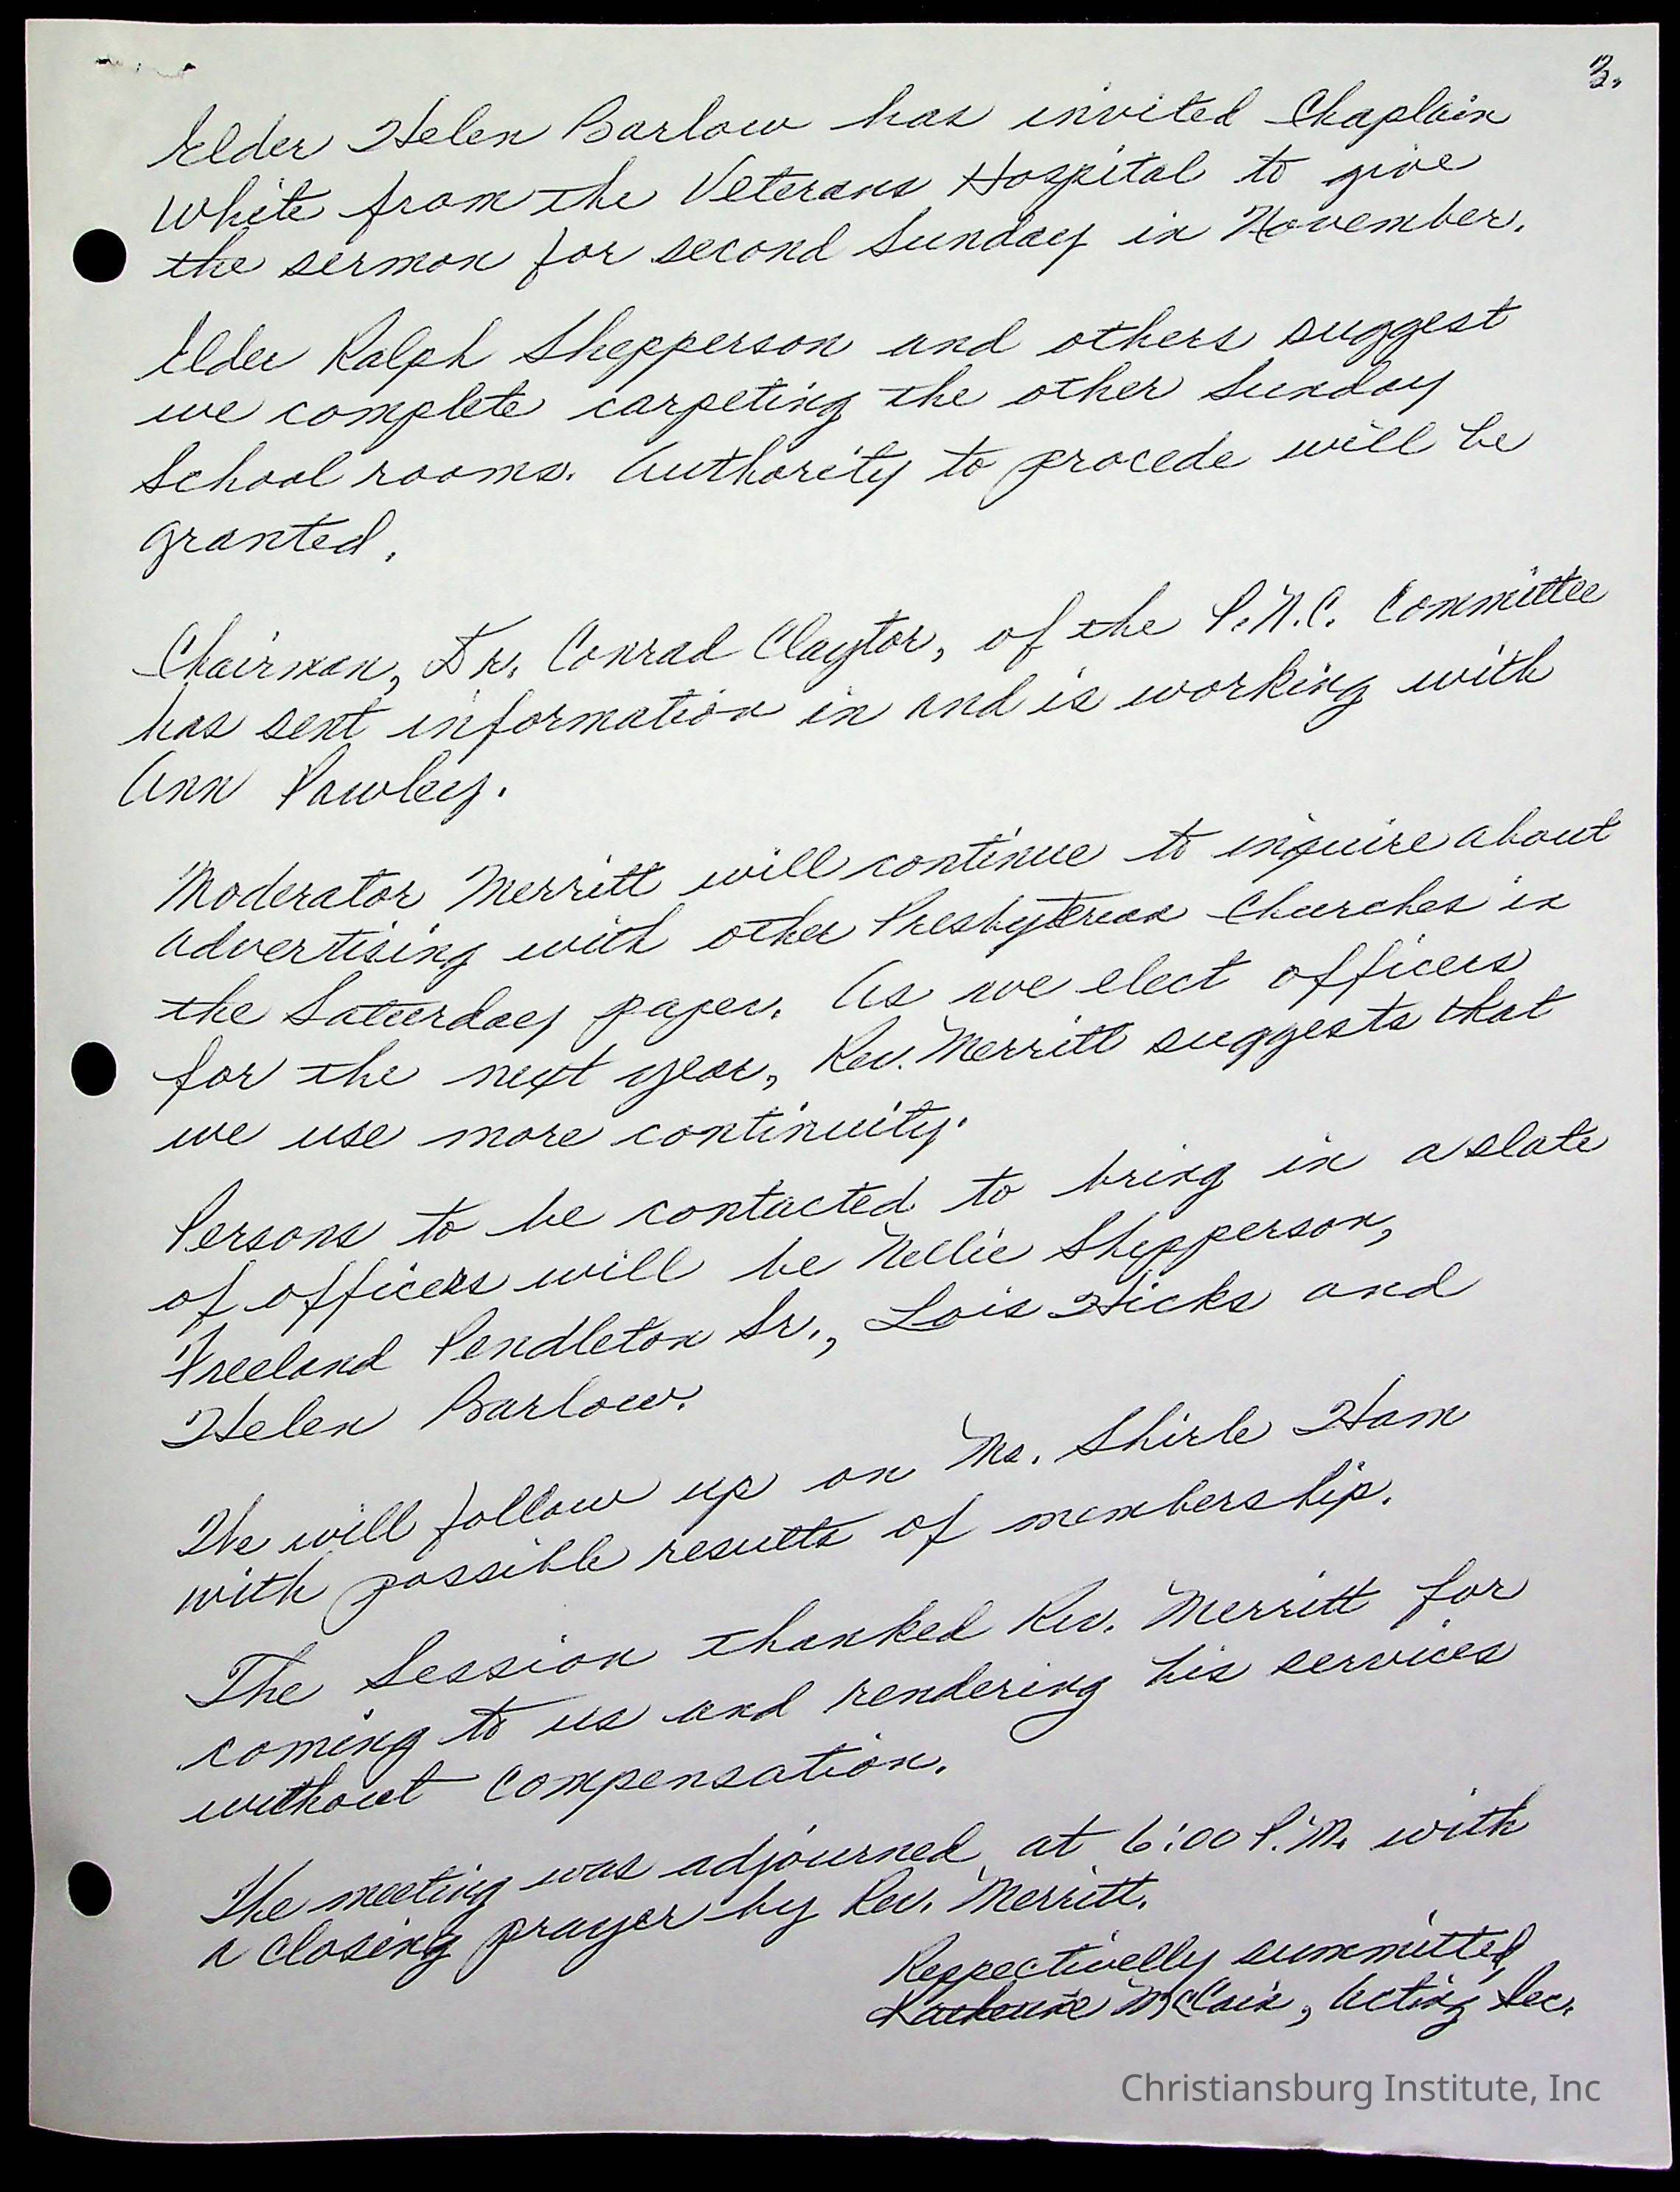 3.
Elder Helen Barlow has invited Chaplain
White from the Veterans Hospital to give
the sermon for second Sunday in November.
Elder Ralph Shepperson and others suggest
we complete carpeting the other Sunday
School rooms. Authority to procede will be
granted.
Chairman, Dr. Conrad Claytor, of the P.N.C. Committee
has sent information in and is working with
Ann Pawley.
Moderator Merritt will continue to inquire about
advertising with other Presbyterian Churches in
the Saturday paper. As we elect officers
for the next year, Rev. Merritt suggests that
we use more continuity.
Persons to be contacted to bring in a slate
of officers will be Nellie Shepperson,
Freeland Pendleton Sr., Lois Hicks and
Helen Barlow.
We will follow up on Ms. Shirle Ham
with possible results of membership.
The Session thanked Rev. Merritt for
coming to us and rendering his services
without compensation.
The meeting was adjourned at 6:00 P.M. with
a closing prayer by Rev. Merritt.
Respectivelly summitted,
McCain, Acting Sec.
Christiansburg Institute, Inc